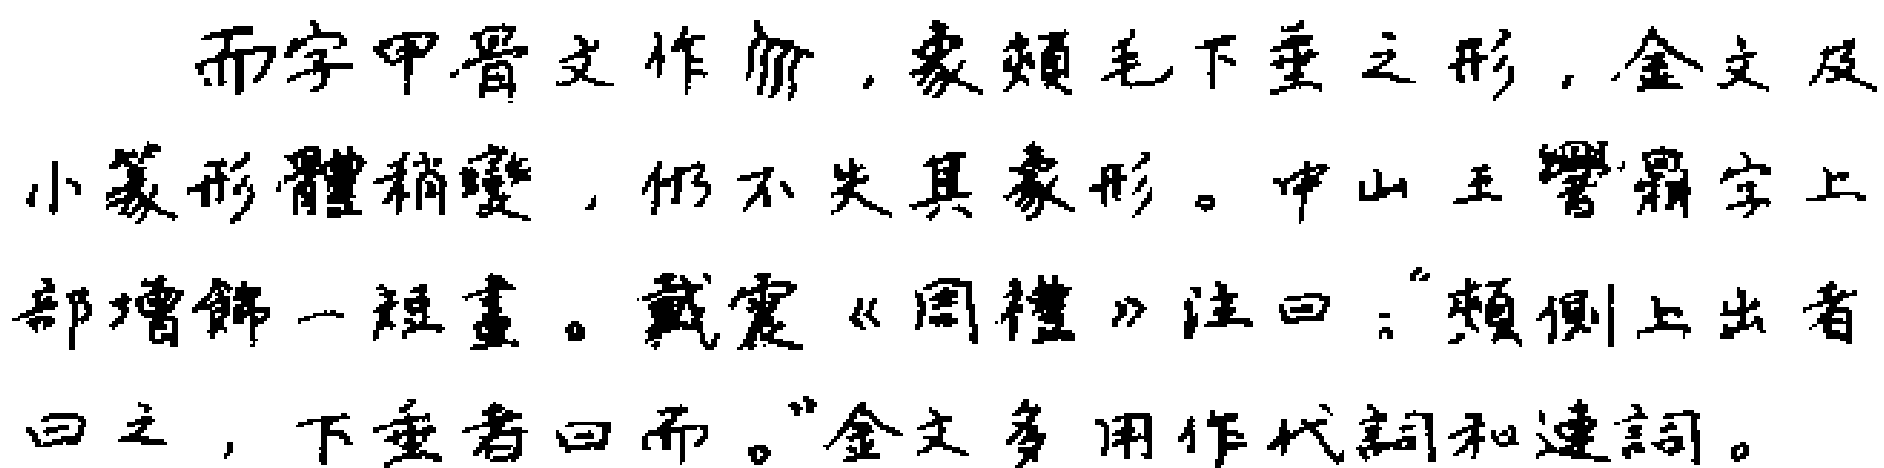 而字甲骨文作，象頰毛下垂之形，金文及
小篆形體稍變，仍不失其象形。中山王鼎字上
部增飾一短畫。戴震《周禮》注曰：“頰側上出者
曰之，下垂者曰而。”金文多用作代詞和連詞。